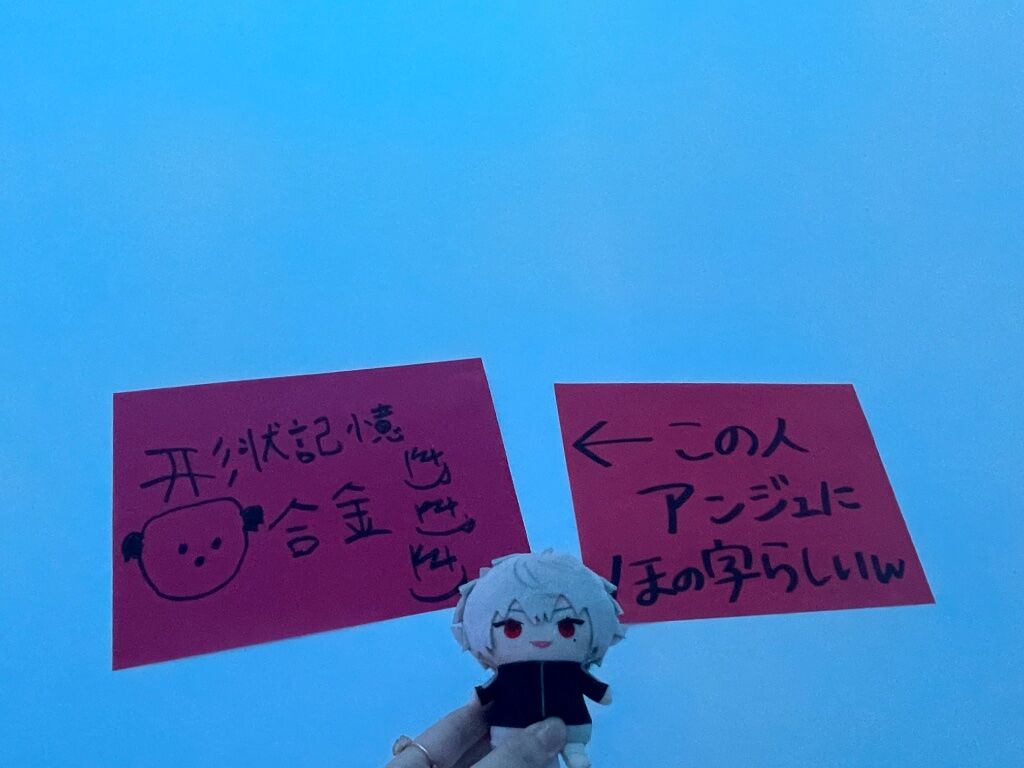 形状記憶
合金
← この人
アンジュに
ほの字らしいw